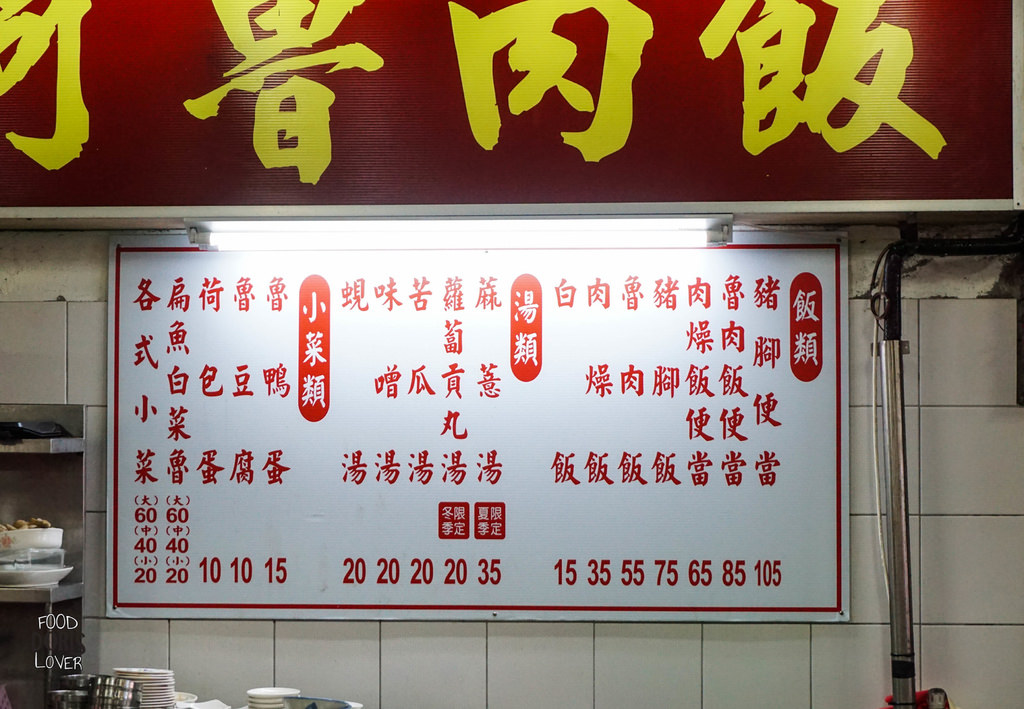 魯肉飯
飯類
豬腳便當 105
魯肉飯便當 85
肉燥飯便當 65
豬腳飯 75
魯肉飯 55
肉燥飯 35
白飯 15
湯類
蔴薏湯 夏季限定 35
蘿蔔貢丸湯 冬季限定 20
苦瓜湯 20
味噌湯 20
蜆湯 20
小菜類
魯鴨蛋 15
魯豆腐 10
荷包蛋 10
扁魚白菜魯 (大) 60 (中) 40 (小) 20
各式小菜 (大) 60 (中) 40 (小) 20
FOOD
LOVER